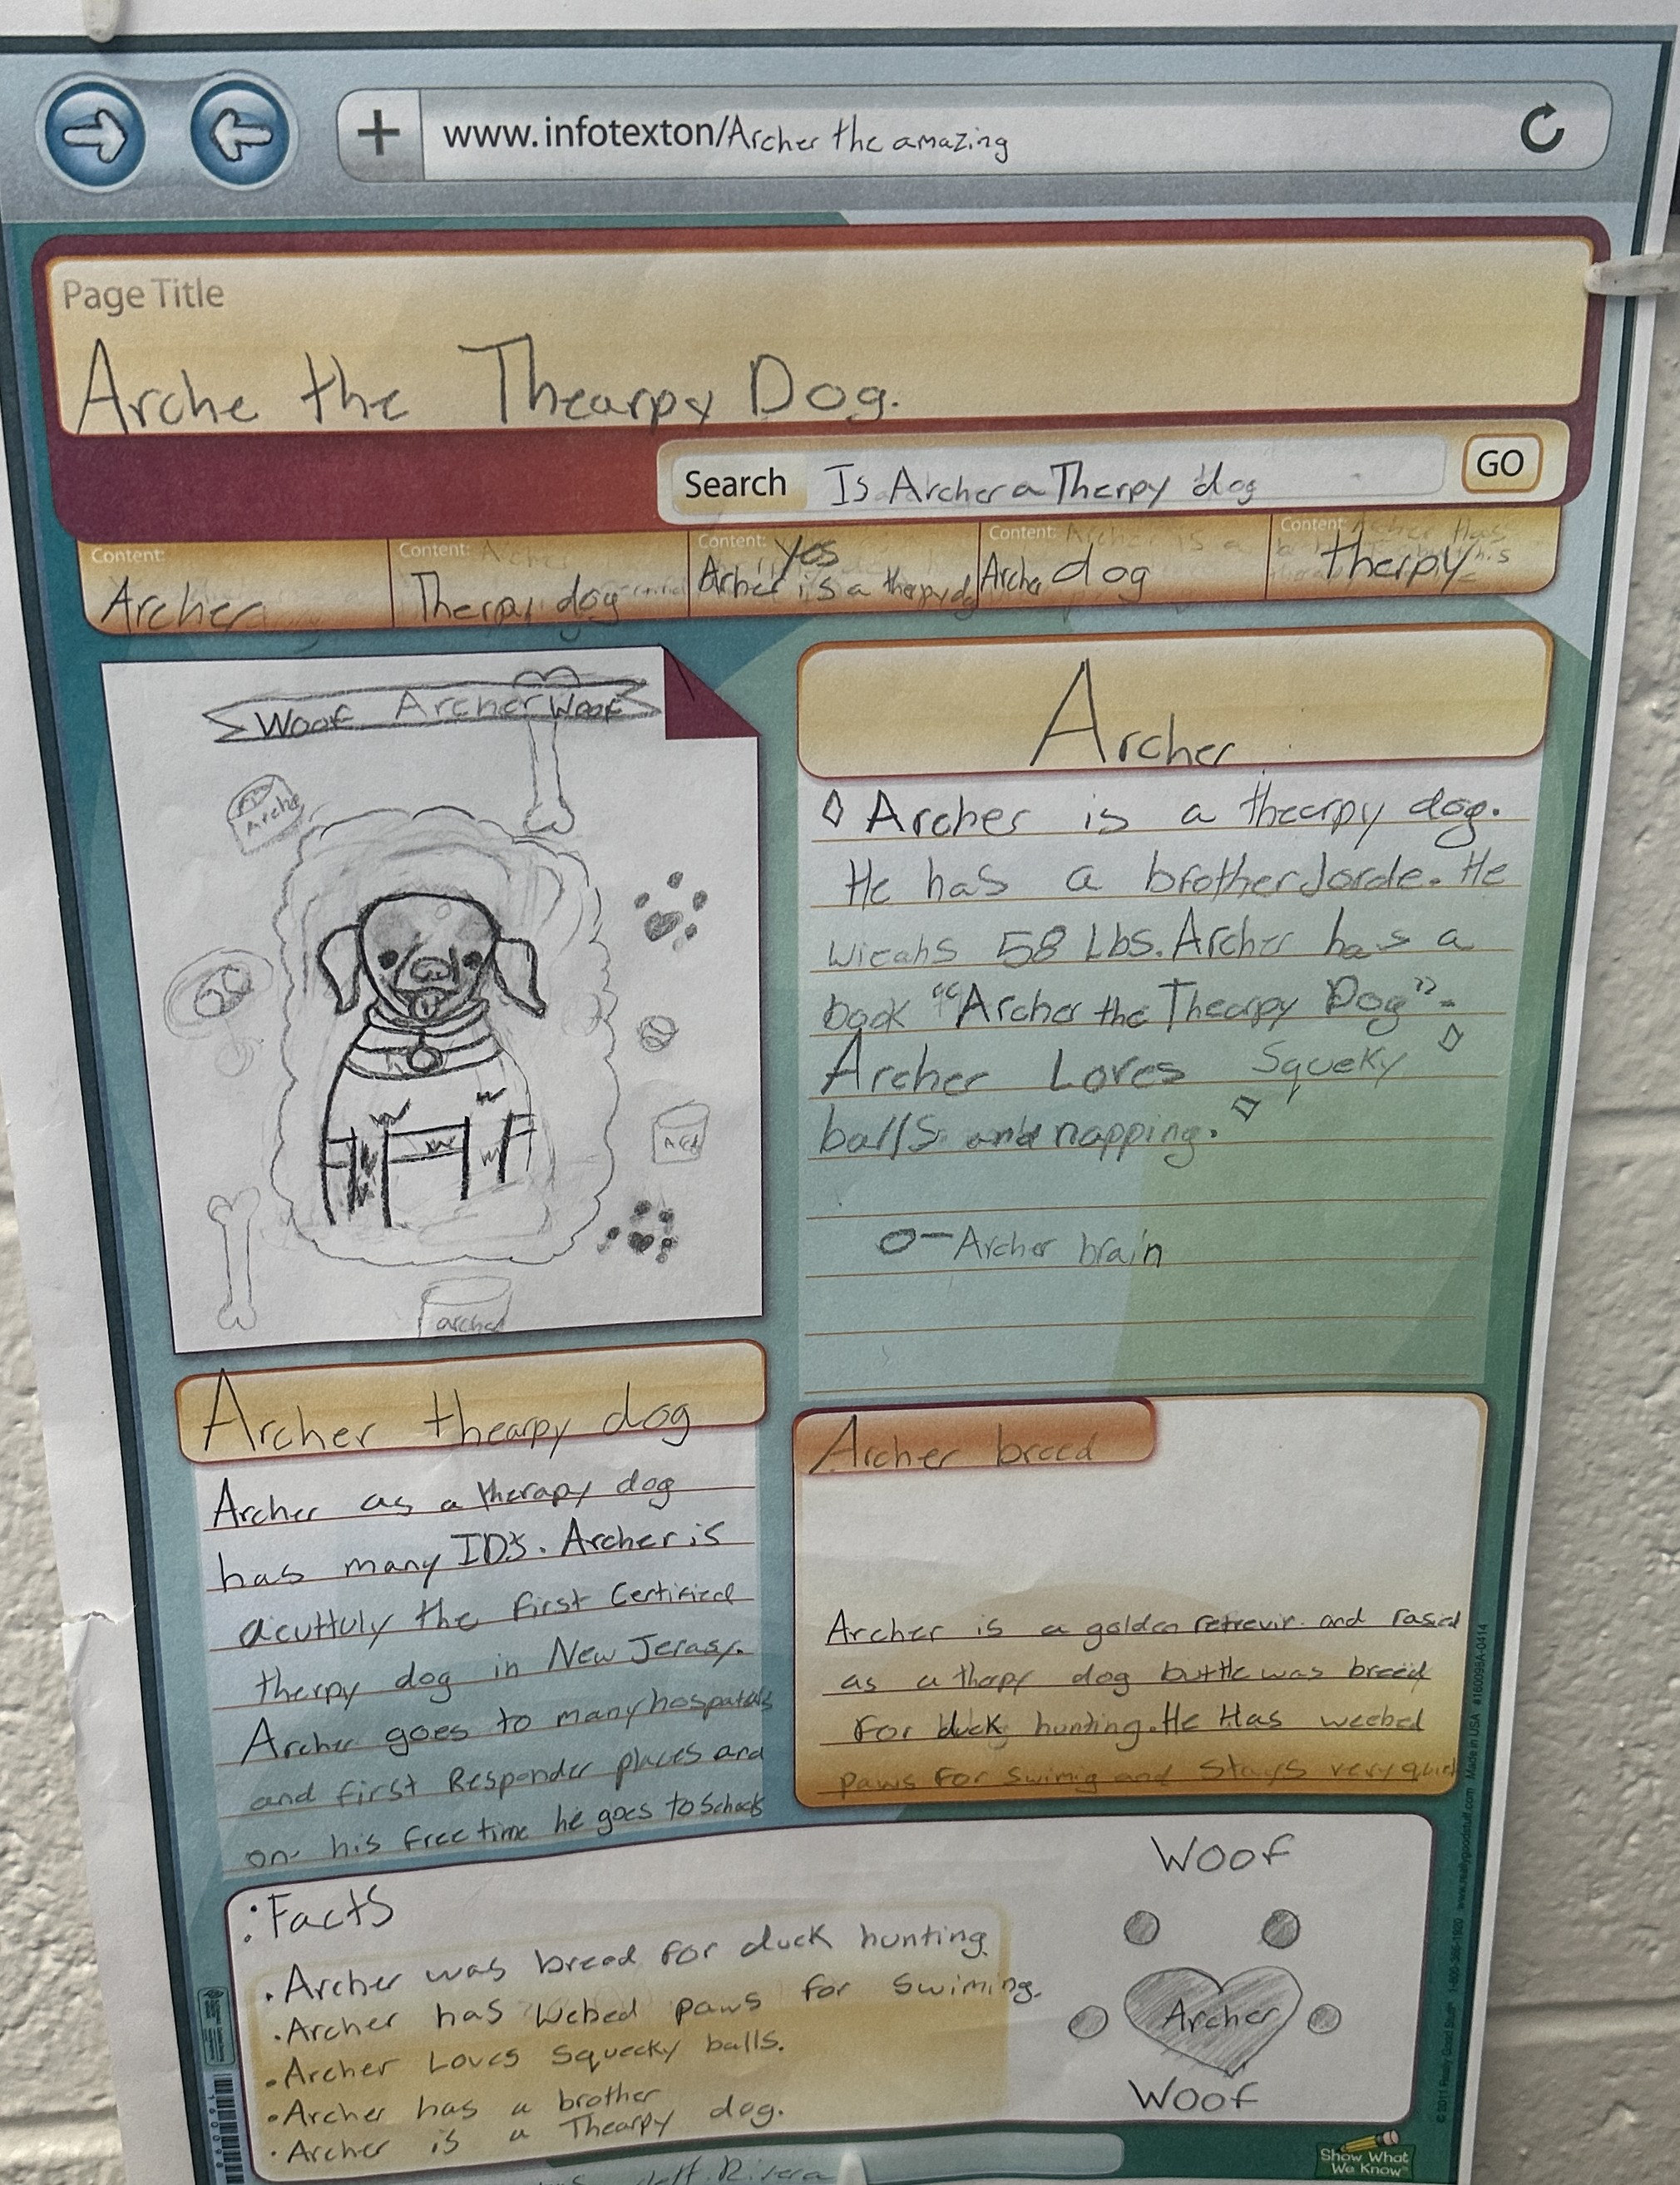 www.infotexton/Archer the amazing
Page Title
Arche the Thearpy Dog.
Search Is Archer a Therpy dog GO
Content: Archer
Content: Therpy dog
Content: yes
Archer is a therpy dog
Content: Archer dog
Content: therpy
Woof Archer Woof
Archer
Archer
Archer is a thearpy dog.
He has a brother Jorde. He
wieahs 58 Lbs. Archer has a
book "Archer the Thearpy Dog".
Archer Loves Squeky
balls and napping.
Archer brain
archer
Archer thearpy dog
Archer as a therapy dog
has many ID's. Archer is
acuttuly the first Certified
therpy dog in New Jerasy.
Archer goes to many hospatals
and first Responder places and
on his free time he goes to schools
Archer breed
Archer is a golden retrevir and rased
as a therpy dog but He was breed
For duck hunting. He Has weebed
paws For swimig and stays very quiet
:Facts
• Archer was breed for duck hunting.
• Archer has webed paws for swiming.
• Archer Loves squecky balls.
• Archer has a brother
• Archer is a Thearpy dog.
Woof
Archer
Woof
Rivera
Show What
We Know
© 2011 Really Good Stuff® 1-800-366-1920 www.reallygoodstuff.com Made in USA #160098A-0414